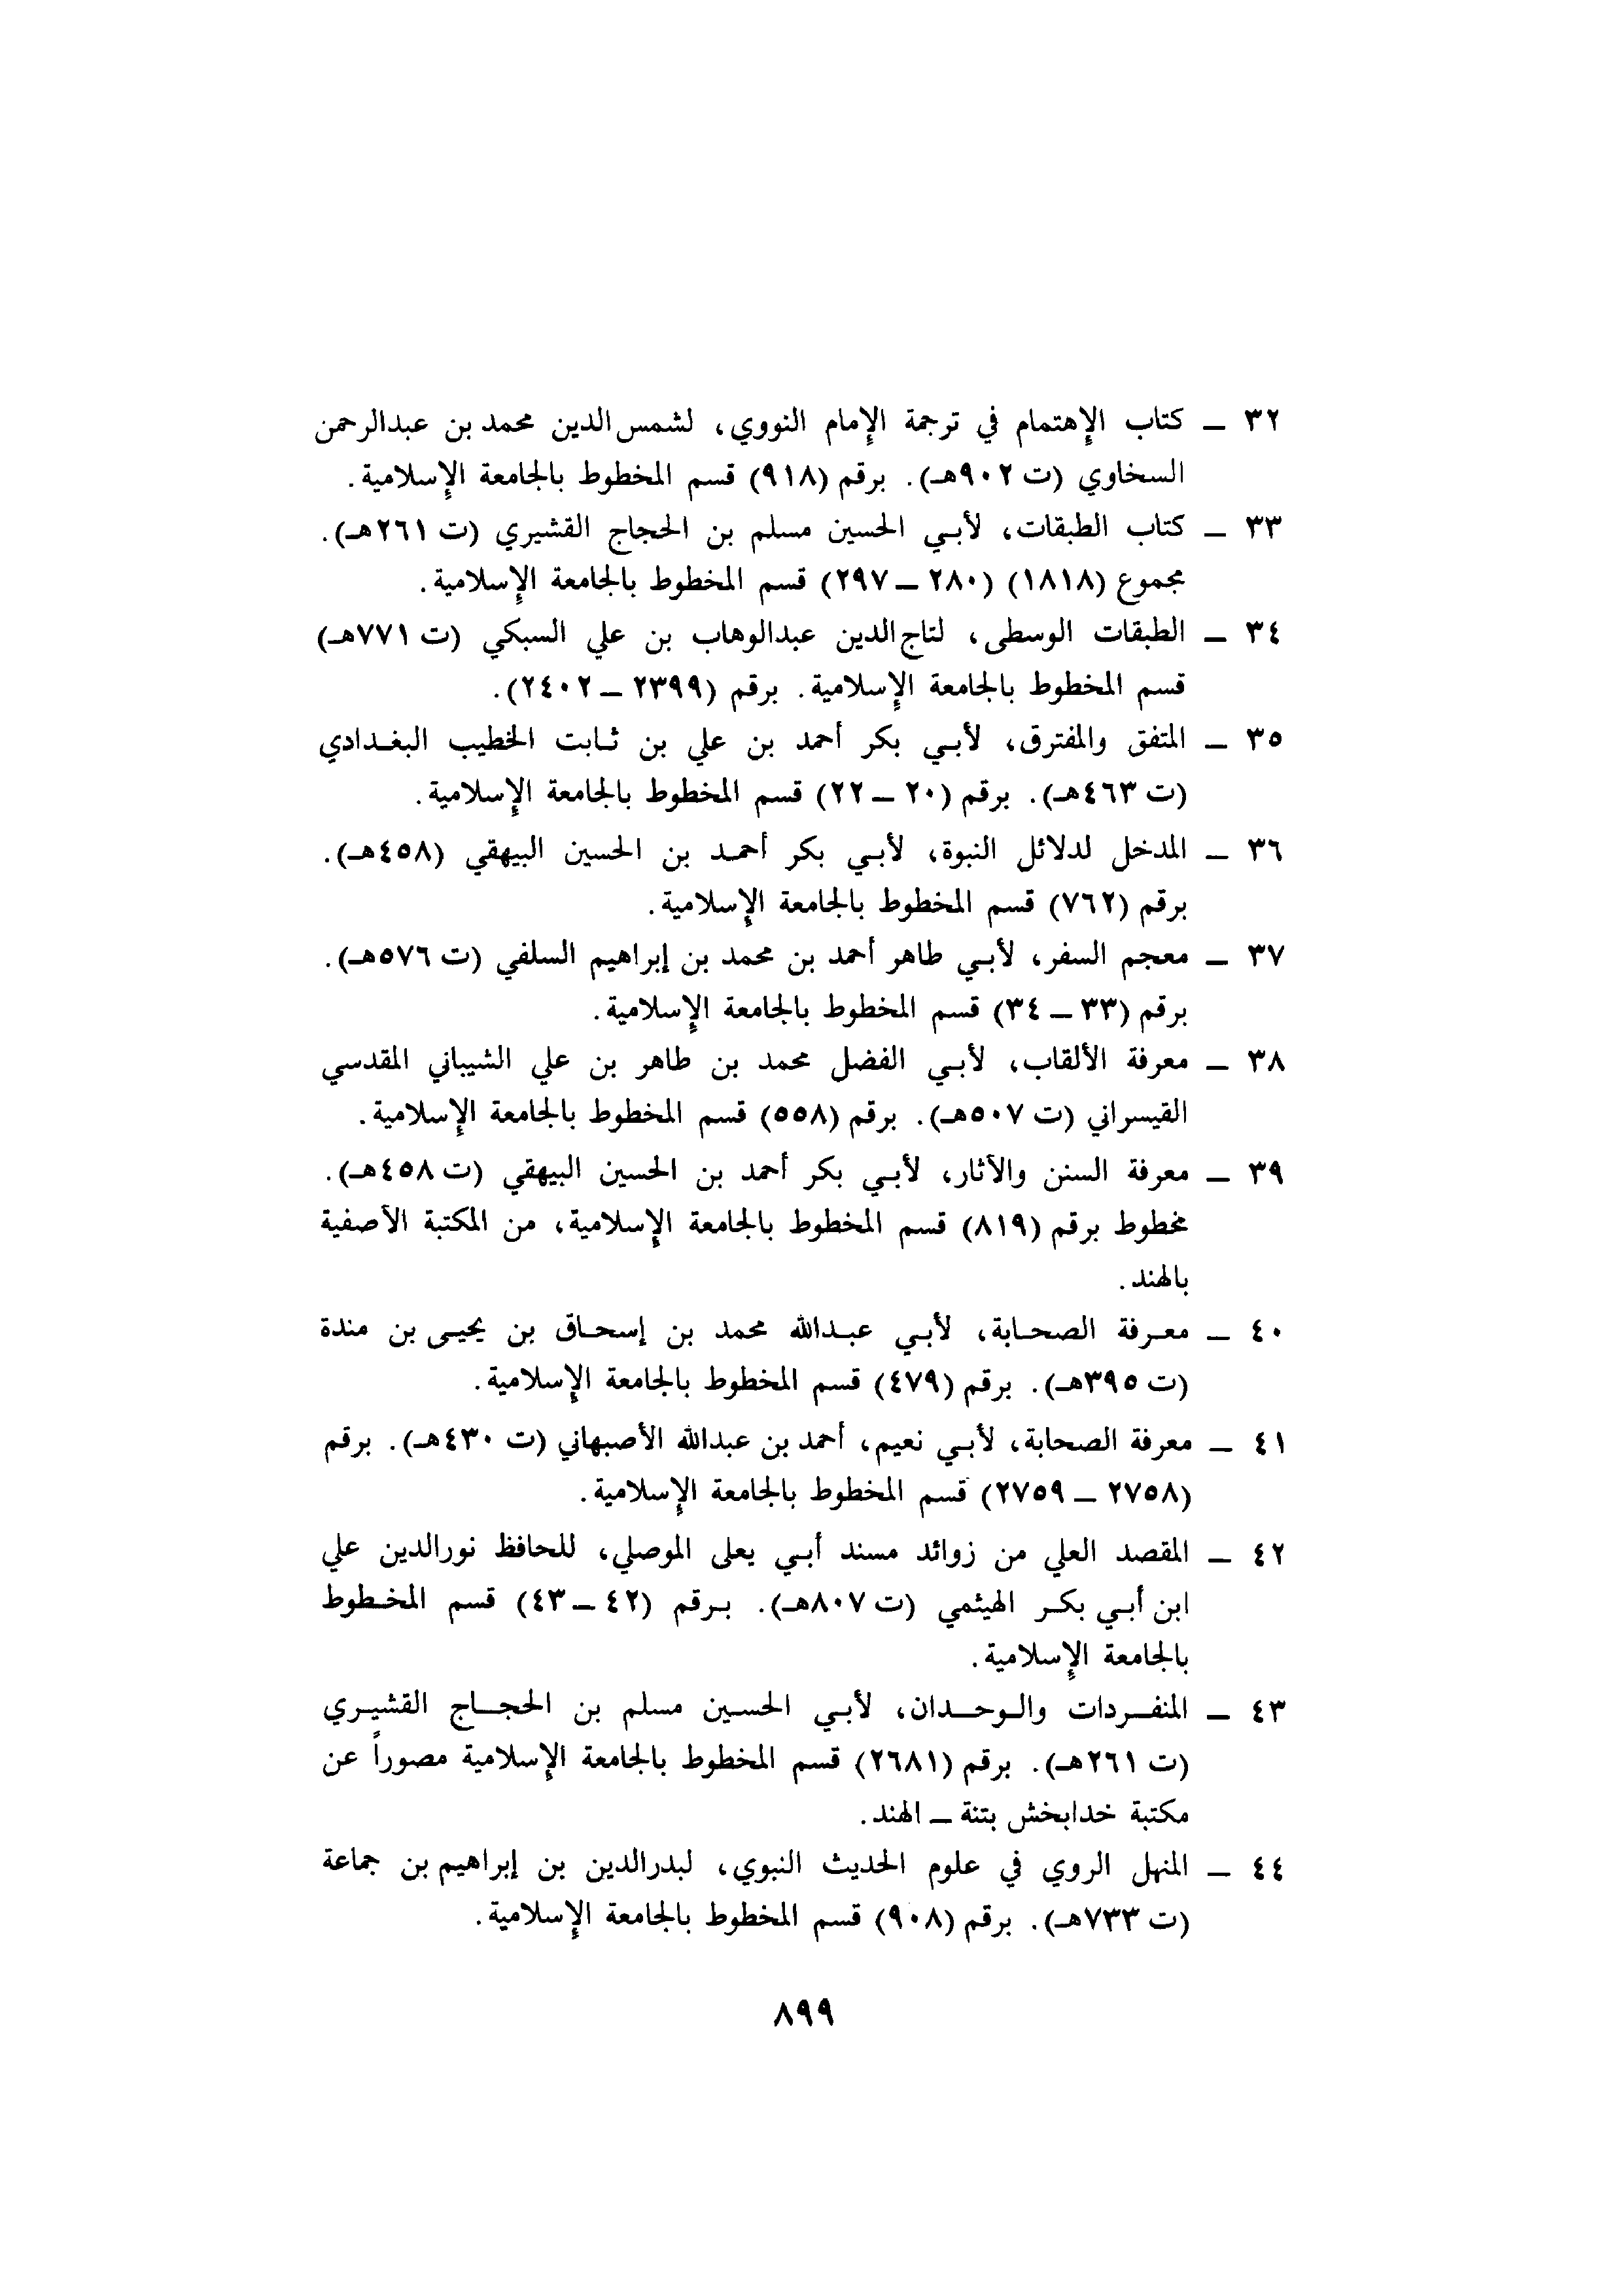 ٣٢ ــ كتاب الإهتمام في ترجمة الإمام النووي، لشمس الدين محمد بن عبدالرحمن
السخاوي (ت ٩٠٢هـ). برقم (٩١٨) قسم المخطوط بالجامعة الإسلامية.
٣٣ ــ كتاب الطبقات، لأبي الحسين مسلم بن الحجاج القشيري (ت ٢٦١هـ).
مجموع (١٨١٨) (٢٨٠ ــ ٢٩٧) قسم المخطوط بالجامعة الإسلامية.
٣٤ ــ الطبقات الوسطى، لتاج الدين عبدالوهاب بن علي السبكي (ت ٧٧١هـ)
قسم المخطوط بالجامعة الإسلامية. برقم (٢٣٩٩ ــ ٢٤٠٢).
٣٥ ــ المتفق والمفترق، لأبي بكر أحمد بن علي بن ثابت الخطيب البغدادي
(ت ٤٦٣هـ). برقم (٢٠ ــ ٢٢) قسم المخطوط بالجامعة الإسلامية.
٣٦ ــ المدخل لدلائل النبوة، لأبي بكر أحمد بن الحسين البيهقي (٤٥٨هـ).
برقم (٧٦٢) قسم المخطوط بالجامعة الإسلامية.
٣٧ ــ معجم السفر، لأبي طاهر أحمد بن محمد بن إبراهيم السلفي (ت ٥٧٦هـ).
برقم (٣٣ ــ ٣٤) قسم المخطوط بالجامعة الإسلامية.
٣٨ ــ معرفة الألقاب، لأبي الفضل محمد بن طاهر بن علي الشيباني المقدسي
القيسراني (ت ٥٠٧هـ). برقم (٥٥٨) قسم المخطوط بالجامعة الإسلامية.
٣٩ ــ معرفة السنن والآثار، لأبي بكر أحمد بن الحسين البيهقي (ت ٤٥٨هـ).
مخطوط برقم (٨١٩) قسم المخطوط بالجامعة الإسلامية، من المكتبة الآصفية
بالهند.
٤٠ ــ معرفة الصحابة، لأبي عبدالله محمد بن إسحاق بن يحيى بن مندة
(ت ٣٩٥هـ). برقم (٤٧٩) قسم المخطوط بالجامعة الإسلامية.
٤١ ــ معرفة الصحابة، لأبي نعيم، أحمد بن عبدالله الأصبهاني (ت ٤٣٠هـ). برقم
(٢٧٥٨ ــ ٢٧٥٩) قسم المخطوط بالجامعة الإسلامية.
٤٢ ــ المقصد العلي من زوائد مسند أبي يعلى الموصلي، للحافظ نورالدين علي
ابن أبي بكر الهيثمي (ت ٨٠٧هـ). برقم (٤٢ ــ ٤٣) قسم المخطوط
بالجامعة الإسلامية.
٤٣ ــ المنفردات والوحدان، لأبي الحسين مسلم بن الحجاج القشيري
(ت ٢٦١هـ). برقم (٢٦٨١) قسم المخطوط بالجامعة الإسلامية مصوراً عن
مكتبة خدابخش بتنة ــ الهند.
٤٤ ــ المنهل الروي في علوم الحديث النبوي، لبدرالدين بن إبراهيم بن جماعة
(ت ٧٣٣هـ). برقم (٩٠٨) قسم المخطوط بالجامعة الإسلامية.
٨٩٩